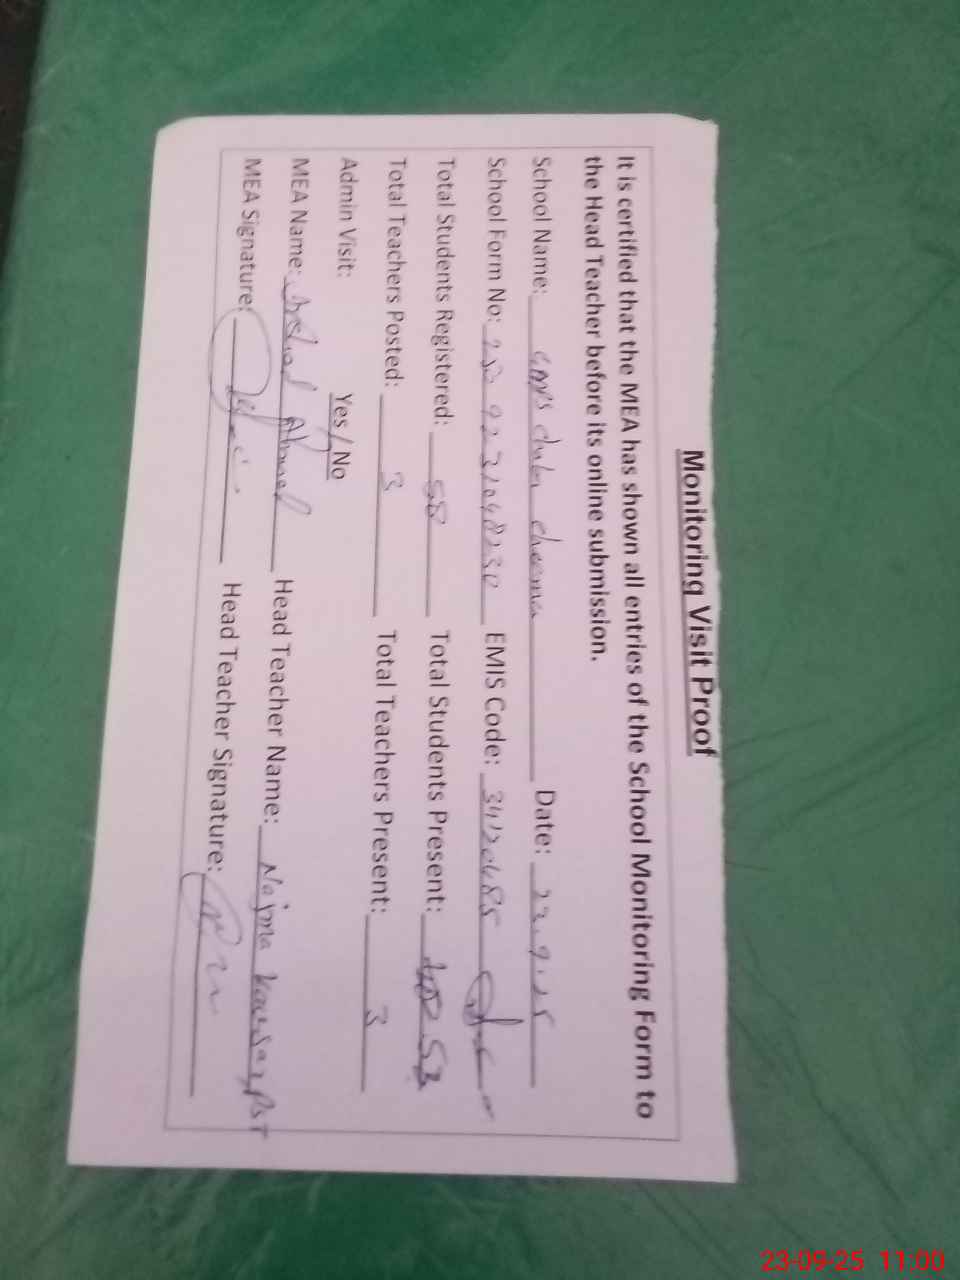 Monitoring Visit Proof
It is certified that the MEA has shown all entries of the School Monitoring Form to
the Head Teacher before its online submission.
School Name: Date: 23.9.25
School Form No: EMIS Code: 34120485
Total Students Registered: 58 Total Students Present: 53
Total Teachers Posted: 3 Total Teachers Present: 3
Admin Visit: Yes / No
MEA Name: Ahmed Head Teacher Name: Najma Kausar PST
MEA Signature: Head Teacher Signature:
23-09-25 11:00